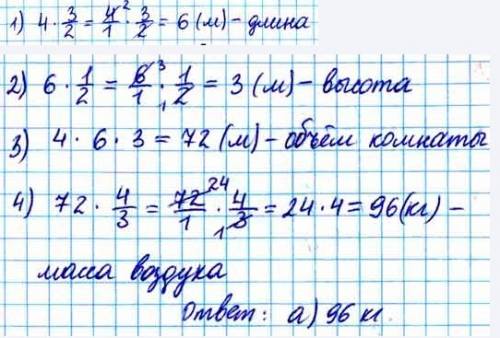 1) 4 · 3/2 = 4²/1 · 3/2 = 6 (м) - длина
2) 6 · 1/2 = 6³/1 · 1/2₁ = 3 (м) - высота
3) 4 · 6 · 3 = 72 (м) - объём комнаты
4) 72 · 4/3 = 72²⁴/1 · 4/3₁ = 24 · 4 = 96 (кг) -
масса воздуха
Ответ: а) 96 кг.